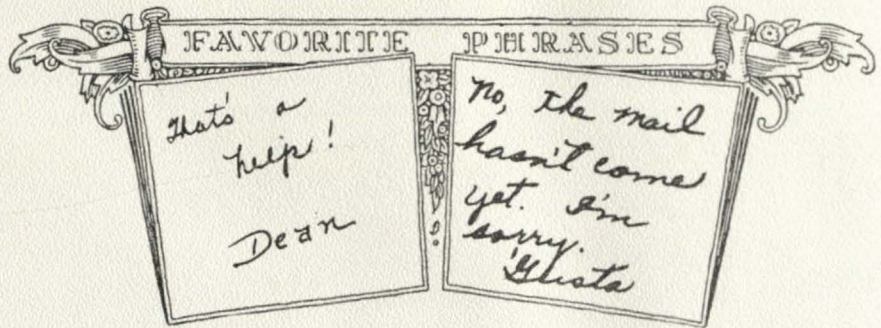 FAVORITE PHRASES
That's a
help!
Dean
No, the mail
hasn't come
yet. I'm
sorry.